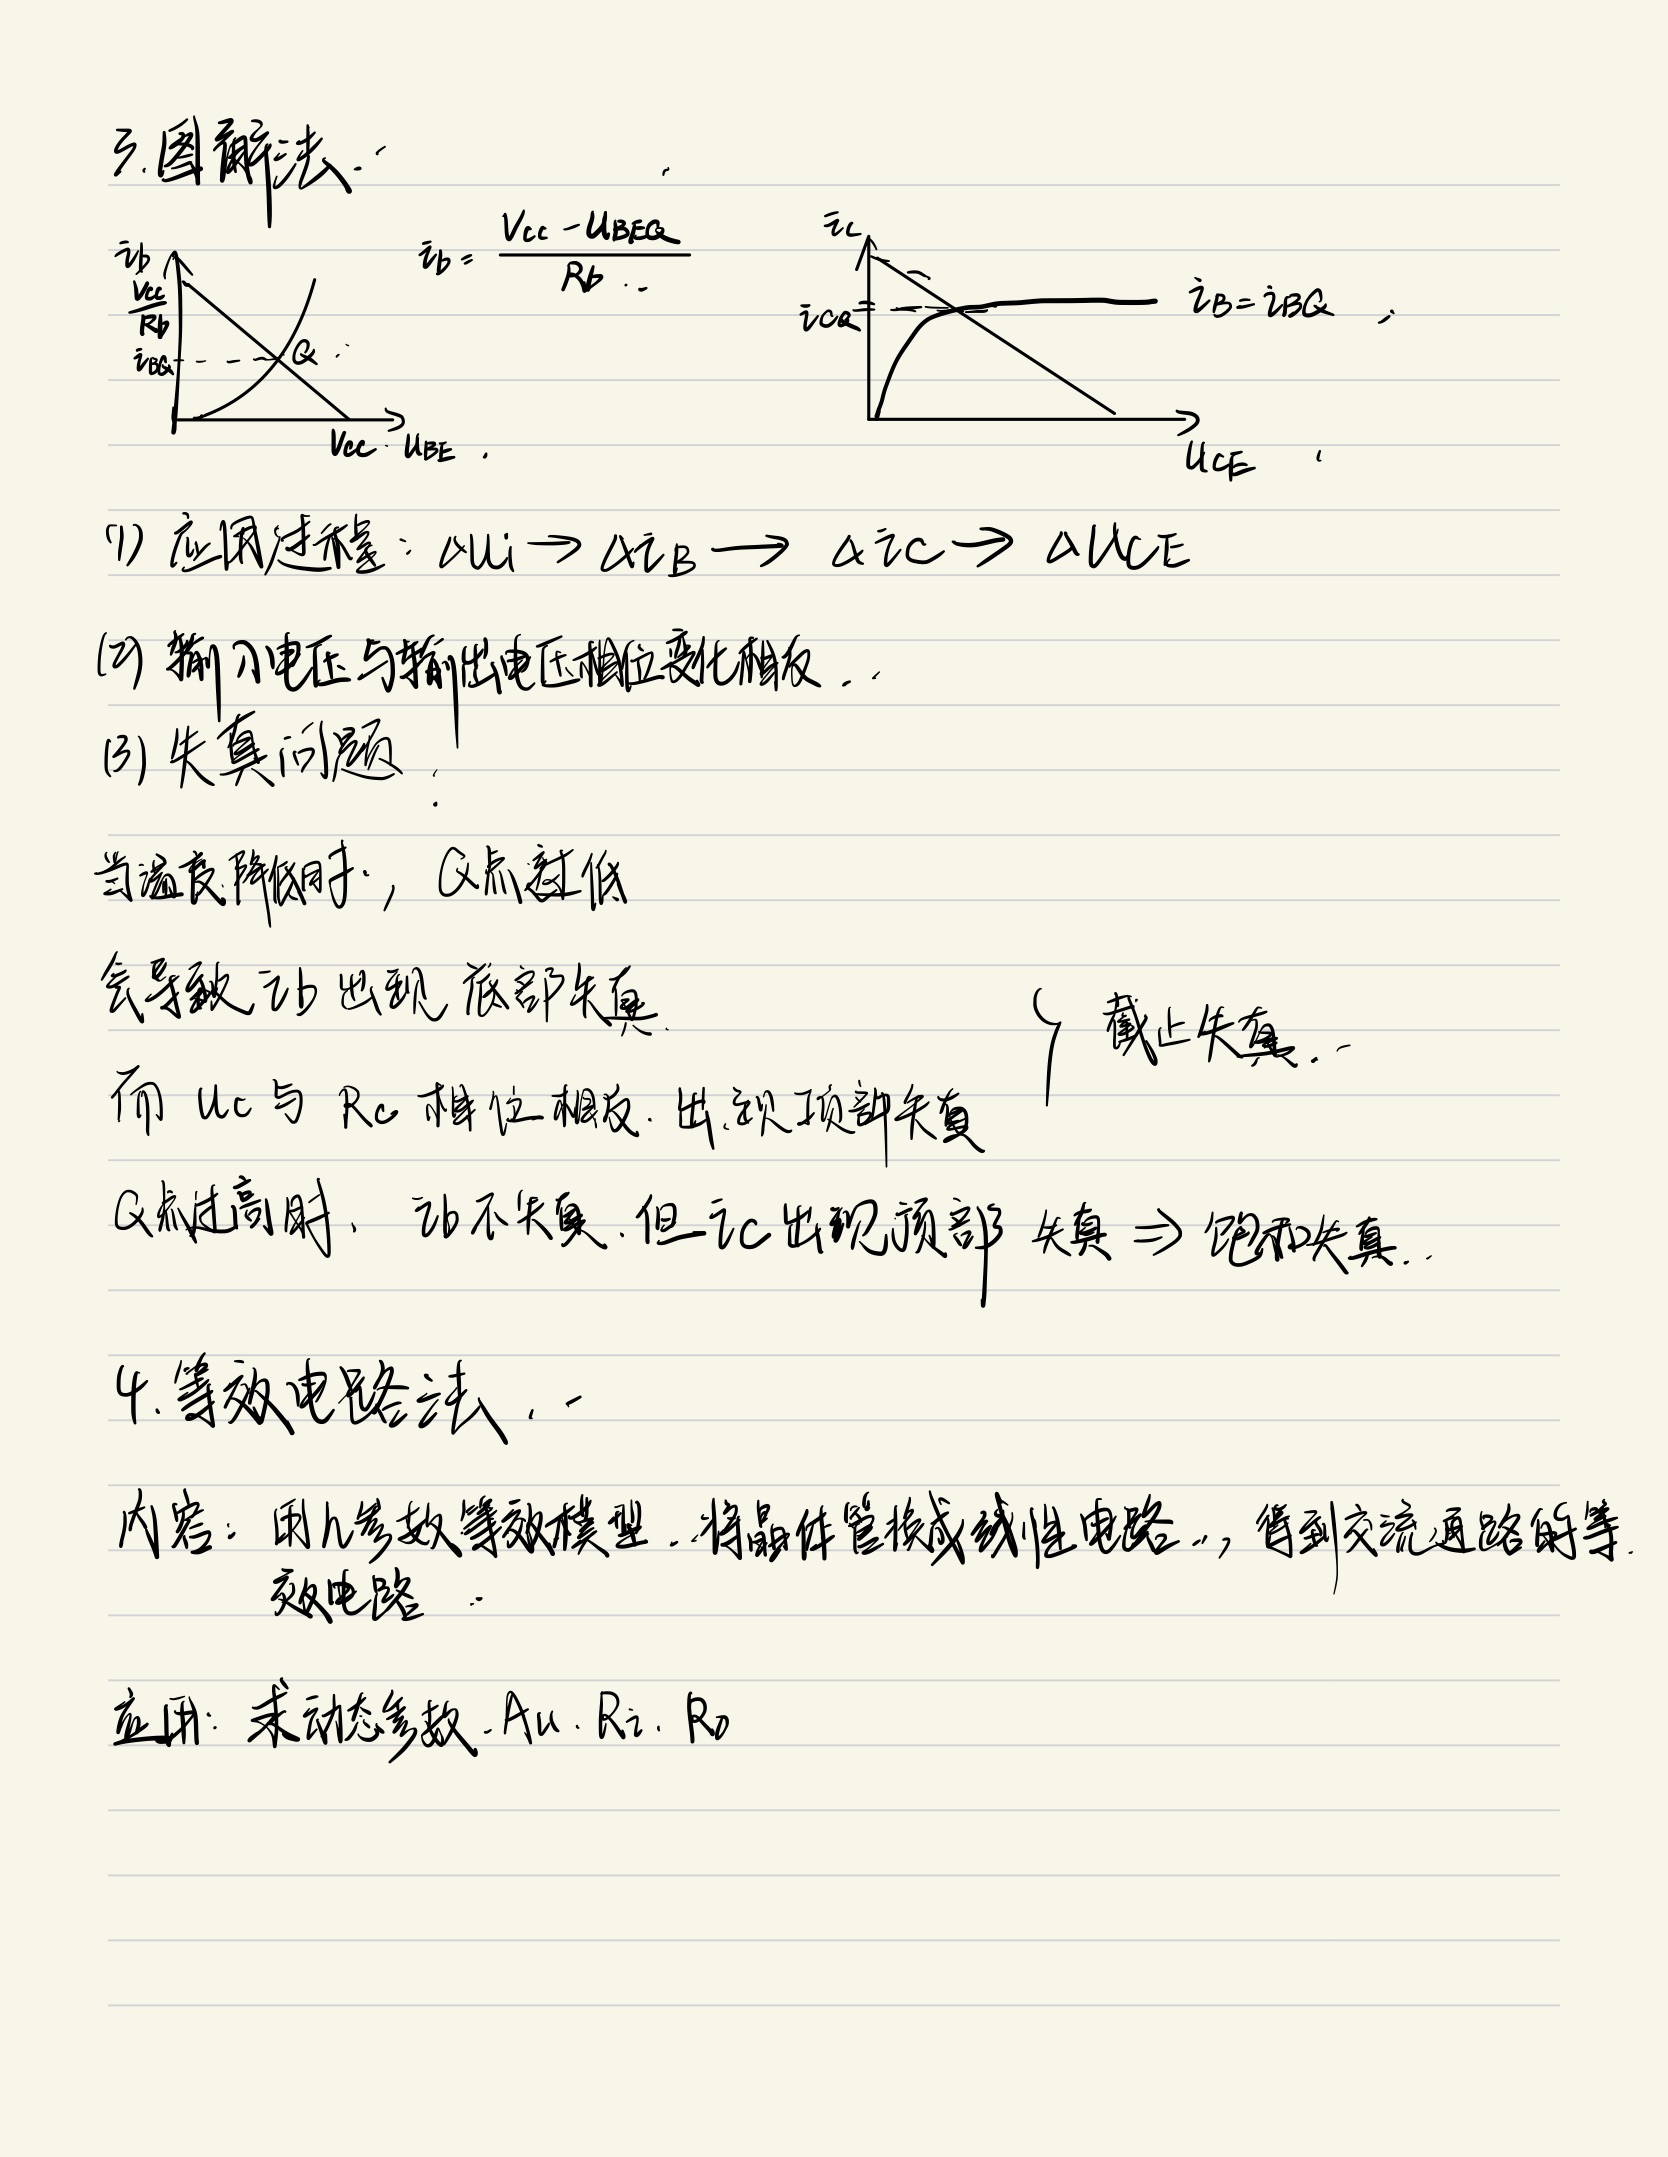 3.图解法.
ib
Vcc/Rb
iBQ
Q
Vcc UBE
ib = (Vcc - UBEQ)/Rb
iC
iCQ
iB = iBQ
UCE
(1) 应用过程: ΔUi → ΔiB → ΔiC → ΔUCE
(2) 输入电压与输出电压相位变化相反.
(3) 失真问题
当温度降低时, Q点过低
会导致 ib 出现 底部失真.
而 Uc 与 Rc 相位相反. 出现顶部失真
截止失真.
Q点过高时, ib不失真.但 iC 出现顶部 失真 ⇒ 饱和失真.
4.等效电路法.
内容: 用h参数等效模型.将晶体管换成线性电路., 得到交流通路的等
效电路
应用: 求动态参数.Au.Ri.Ro